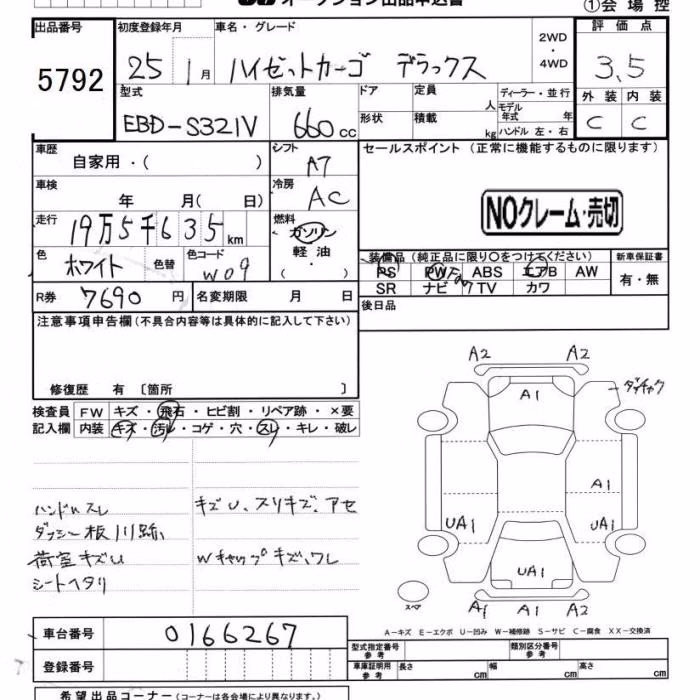 オークション出品申込書
①会場控
出品番号
5792
初度登録年月
25 1月
車名・グレード
ハイゼットカーゴ デラックス
2WD・4WD
評価点
3,5
外装 内装
C C
型式
EBD-S321V
排気量
660cc
ドア
形状
定員 人
積載 kg
ディーラー・並行
モデル年式 年
ハンドル 左・右
車歴
自家用・( )
シフト
A7
セールスポイント(正常に機能するものに限ります)
車検
年 月(日)
冷房
AC
NOクレーム・売切
走行
19万5千635km
燃料
ガソリン
軽油
・
( )
色
ホワイト
色替
色コード
W09
装備品(純正品に限り○をつけてください)
PS PW ABS エアB AW
SR ナビ TV カワ
新車保証書
有・無
R券
7690円
名変期限 月 日
後日品
注意事項申告欄(不具合内容等は具体的に記入して下さい)
修復歴 有〔箇所 〕
検査員記入欄
FW キズ・飛石・ヒビ割・リペア跡・×要
内装 キズ・汚レ・コゲ・穴・スレ・キレ・破レ
ハンドルスレ
ダッシュ板 跡
荷室キズU
シートヘタリ
キズU、スリキズ、アセ
Wキャップキズ、ワレ
A2 A2
A1
A1
UA1 UA1
UA1
A1 A2
スペア
A-キズ E-エクボ U-凹み W-補修跡 S-サビ C-腐食 XX-交換済
車台番号
0166267
登録番号
型式指定番号参考
類別区分番号参考
車庫証明用参考
長さ cm 幅 cm 高さ cm
希望出品コーナー(コーナーは各会場により異なります。)